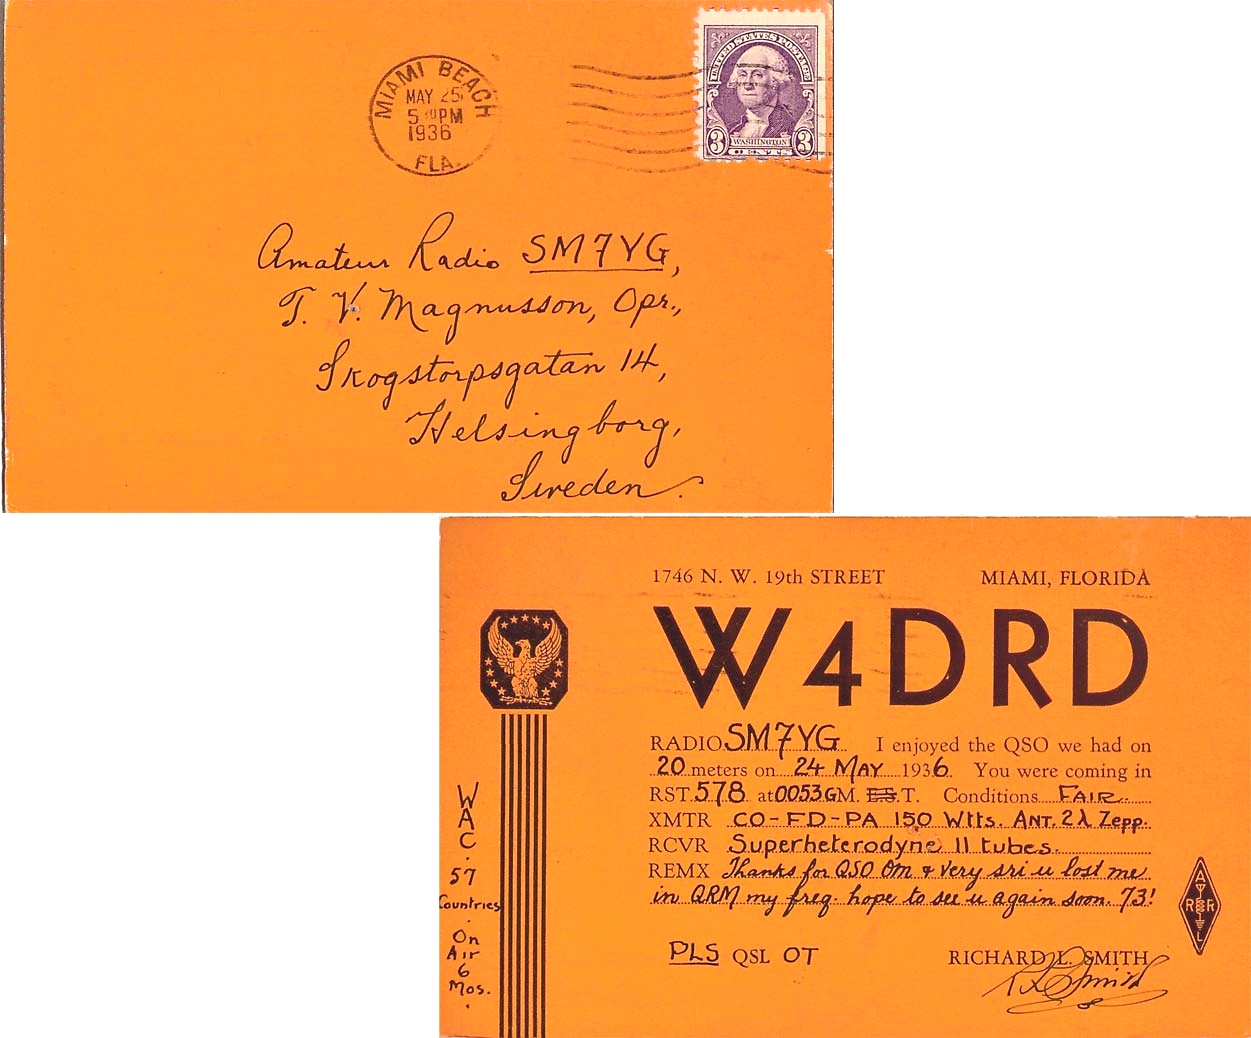 MIAMI BEACH
MAY 25
5 PM
1936
FLA.
UNITED STATES POSTAGE
3 WASHINGTON 3
CENTS
Amateur Radio SM7YG,
T. V. Magnusson, Opr.,
Skogstorpsgatan 14,
Helsingborg,
Sweden.
1746 N. W. 19th STREET MIAMI, FLORIDA
W4DRD
RADIO SM7YG I enjoyed the QSO we had on
20 meters on 24 MAY 1936. You were coming in
RST 578 at 0053 GM. E.S.T. Conditions FAIR
XMTR CO-FD-PA 150 Wtts. ANT. 2λ Zepp.
RCVR Superheterodyne 11 tubes.
REMX Thanks for QSO OM & very sri u lost me
in QRM my freq. hope to see u again soon. 73!
PLS QSL OT RICHARD L. SMITH
R L Smith
WAC.
57
Countries
.
On
Air
6
Mos.
.
A
R R
L